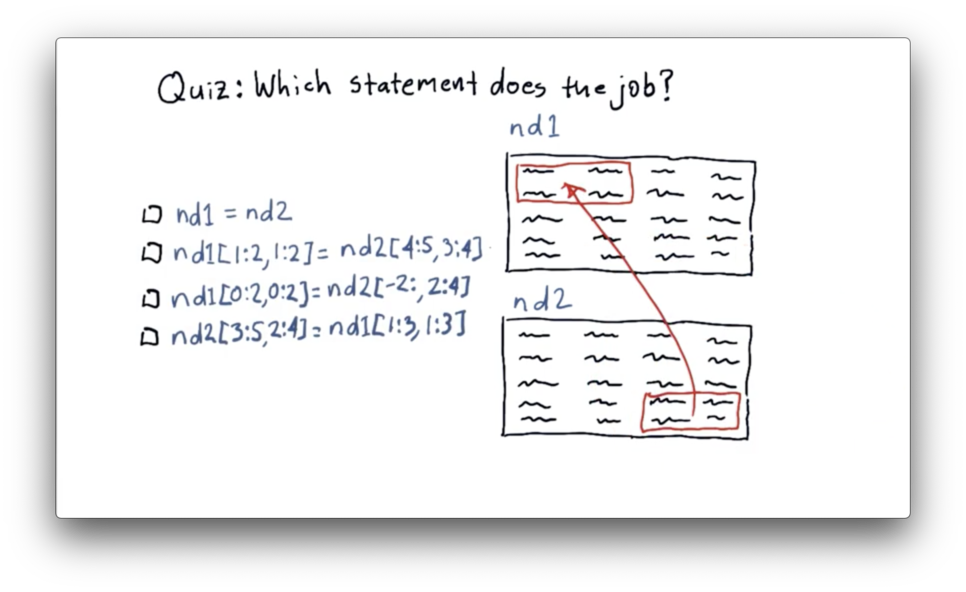 Quiz: Which statement does the job?
nd1
nd1 = nd2
nd1[1:2,1:2]= nd2[4:5,3:4]
nd1[0:2,0:2]=nd2[-2:,2:4]
nd2[3:5,2:4]=nd1[1:3,1:3]
nd2